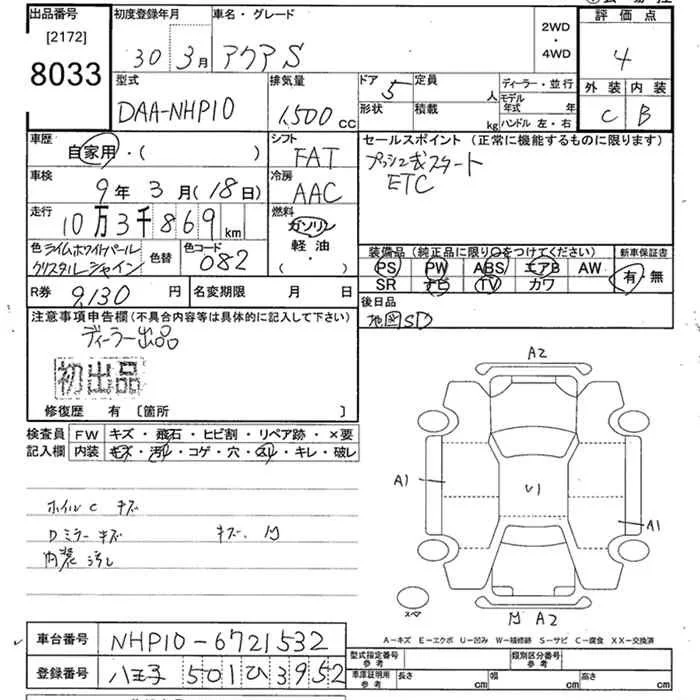 出品番号 初度登録年月 車名・グレード 2WD・4WD 評価点
[2172]
8033 30 3月 アクア S 4
型式 排気量 ドア 定員 人 ディーラー・並行 外装 内装
DAA-NHP10 1,500cc 5 形状 積載 kg モデル年式 年 C B
ハンドル 左・右
車歴 シフト セールスポイント(正常に機能するものに限ります)
自家用・( ) FAT プッシュ式スタート
車検 冷房 ETC
9年 3月(18日) AAC
走行 燃料
10万3千869km ガソリン
軽油
・( )
色 ライムホワイトパール 色替 色コード 装備品(純正品に限り○をつけてください) 新車保証書
クリスタルシャイン 082 PS PW ABS エアB AW 有・無
SR ナビ TV カワ
R券 9,130円 名変期限 月 日 後日品
地図SD
注意事項申告欄(不具合内容等は具体的に記入して下さい)
ディーラー出品
初出品
修復歴 有 [箇所 ]
検査員 FW キズ・飛石・ヒビ割・リペア跡・×要
記入欄 内装 キズ・汚れ・コゲ・穴・スレ・キレ・破レ
A2
A1
U1
A1
ホイルC キズ
Dミラーキズ キズ、
内装 汚し
スペア
A2
A-キズ E-エクボ U-凹み W-補修跡 S-サビ C-腐食 XX-交換済
車台番号 NHP10-6721532 型式指定番号 参考 類別区分番号 参考
登録番号 八王子 501 ひ 3952 車庫証明用 参考 長さ cm 幅 cm 高さ cm